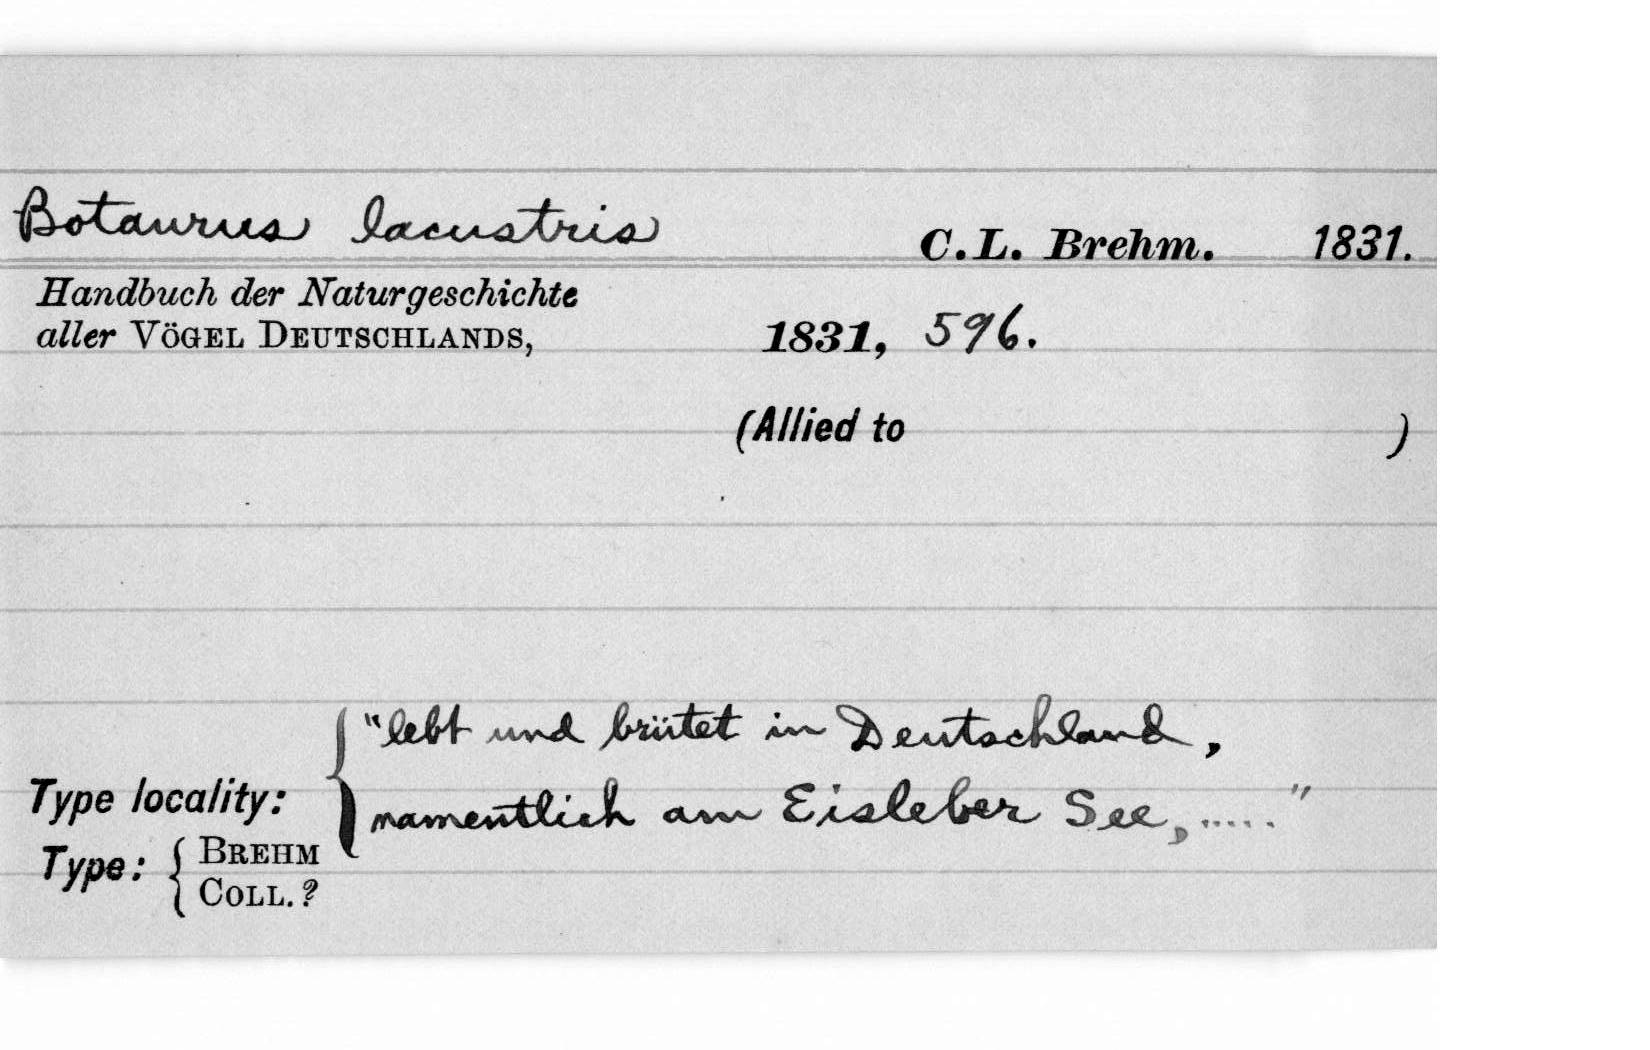 Botaurus lacustris C.L. Brehm. 1831.
Handbuch der Naturgeschichte
aller VÖGEL DEUTSCHLANDS, 1831, 596.
(Allied to )
"lebt und brütet in Deutschland,
Type locality: namentlich am Eisleber See,....."
Type: BREHM
COLL.?